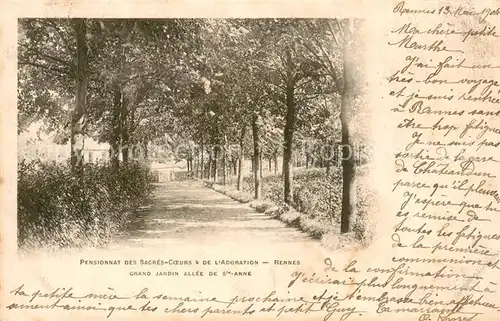 Rennes 13 Mai
Ma chère petite
Marthe
J'ai fait un
très bon voyage
et je suis rentrée
à Rennes sans
être trop fatiguée
Je n'ai pas
de la gare
de Châteaudun
parce qu'il
J'espère que tu
es remise de
toutes les fatigues
de la première
communion et
PENSIONNAT DES SACRÉS-CŒURS & DE L'ADORATION — RENNES
GRAND JARDIN ALLÉE DE STE-ANNE
de la confirmation
plus longuement à
ta petite mère la semaine prochaine et je t'embrasse bien affectueusement
ainsi que tes chers parents et petit Guy. Ta marraine